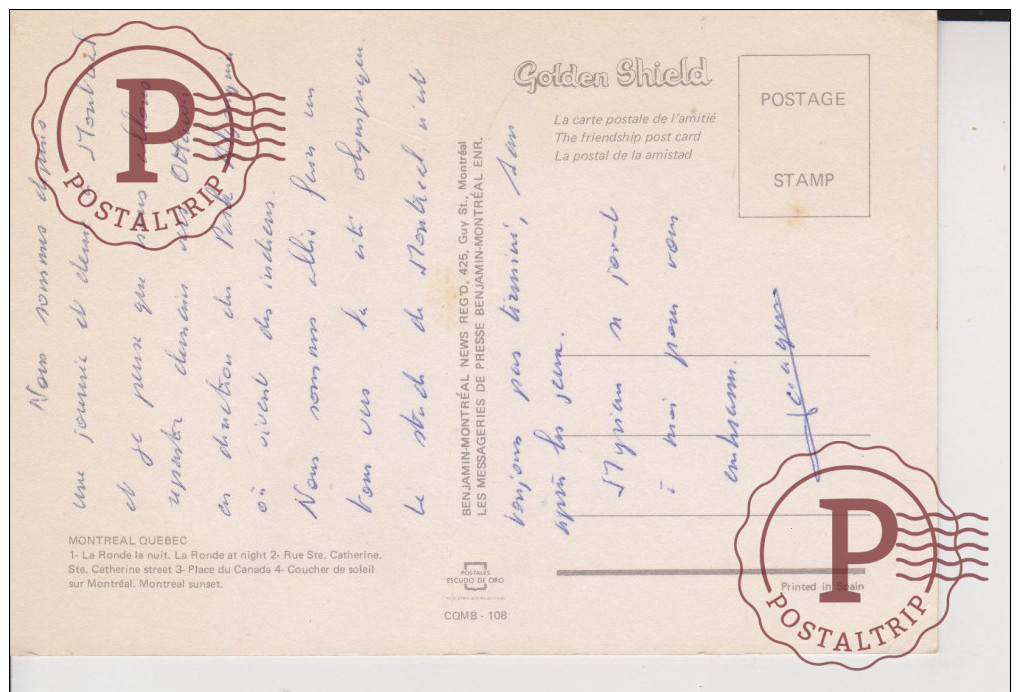 Golden Shield
La carte postale de l'amitié
The friendship post card
La postal de la amistad
POSTAGE
STAMP
Nous sommes depuis
une journée et demi à Montréal
et je pense que nous allons
repartir demain vers Ottawa
en direction du Park Algonquin
où vivent des indiens.
Nous sommes allés hier en
bus vers la cité olympique.
Le stade de Montreal n'est
toujours pas terminé, 4 ans
après les jeux.
Myriam se joint
à moi pour vous
embrasser.
Jacques
BENJAMIN-MONTRÉAL NEWS REG'D, 425, Guy St., Montréal
LES MESSAGERIES DE PRESSE BENJAMIN-MONTRÉAL ENR.
MONTREAL QUEBEC
1- La Ronde la nuit. La Ronde at night 2- Rue Ste. Catherine.
Ste. Catherine street 3- Place du Canada 4- Coucher de soleil
sur Montréal. Montreal sunset.
POSTALES
ESCUDO DE ORO
CQMB - 108
Printed in Spain
P
POSTALTRIP
P
POSTALTRIP